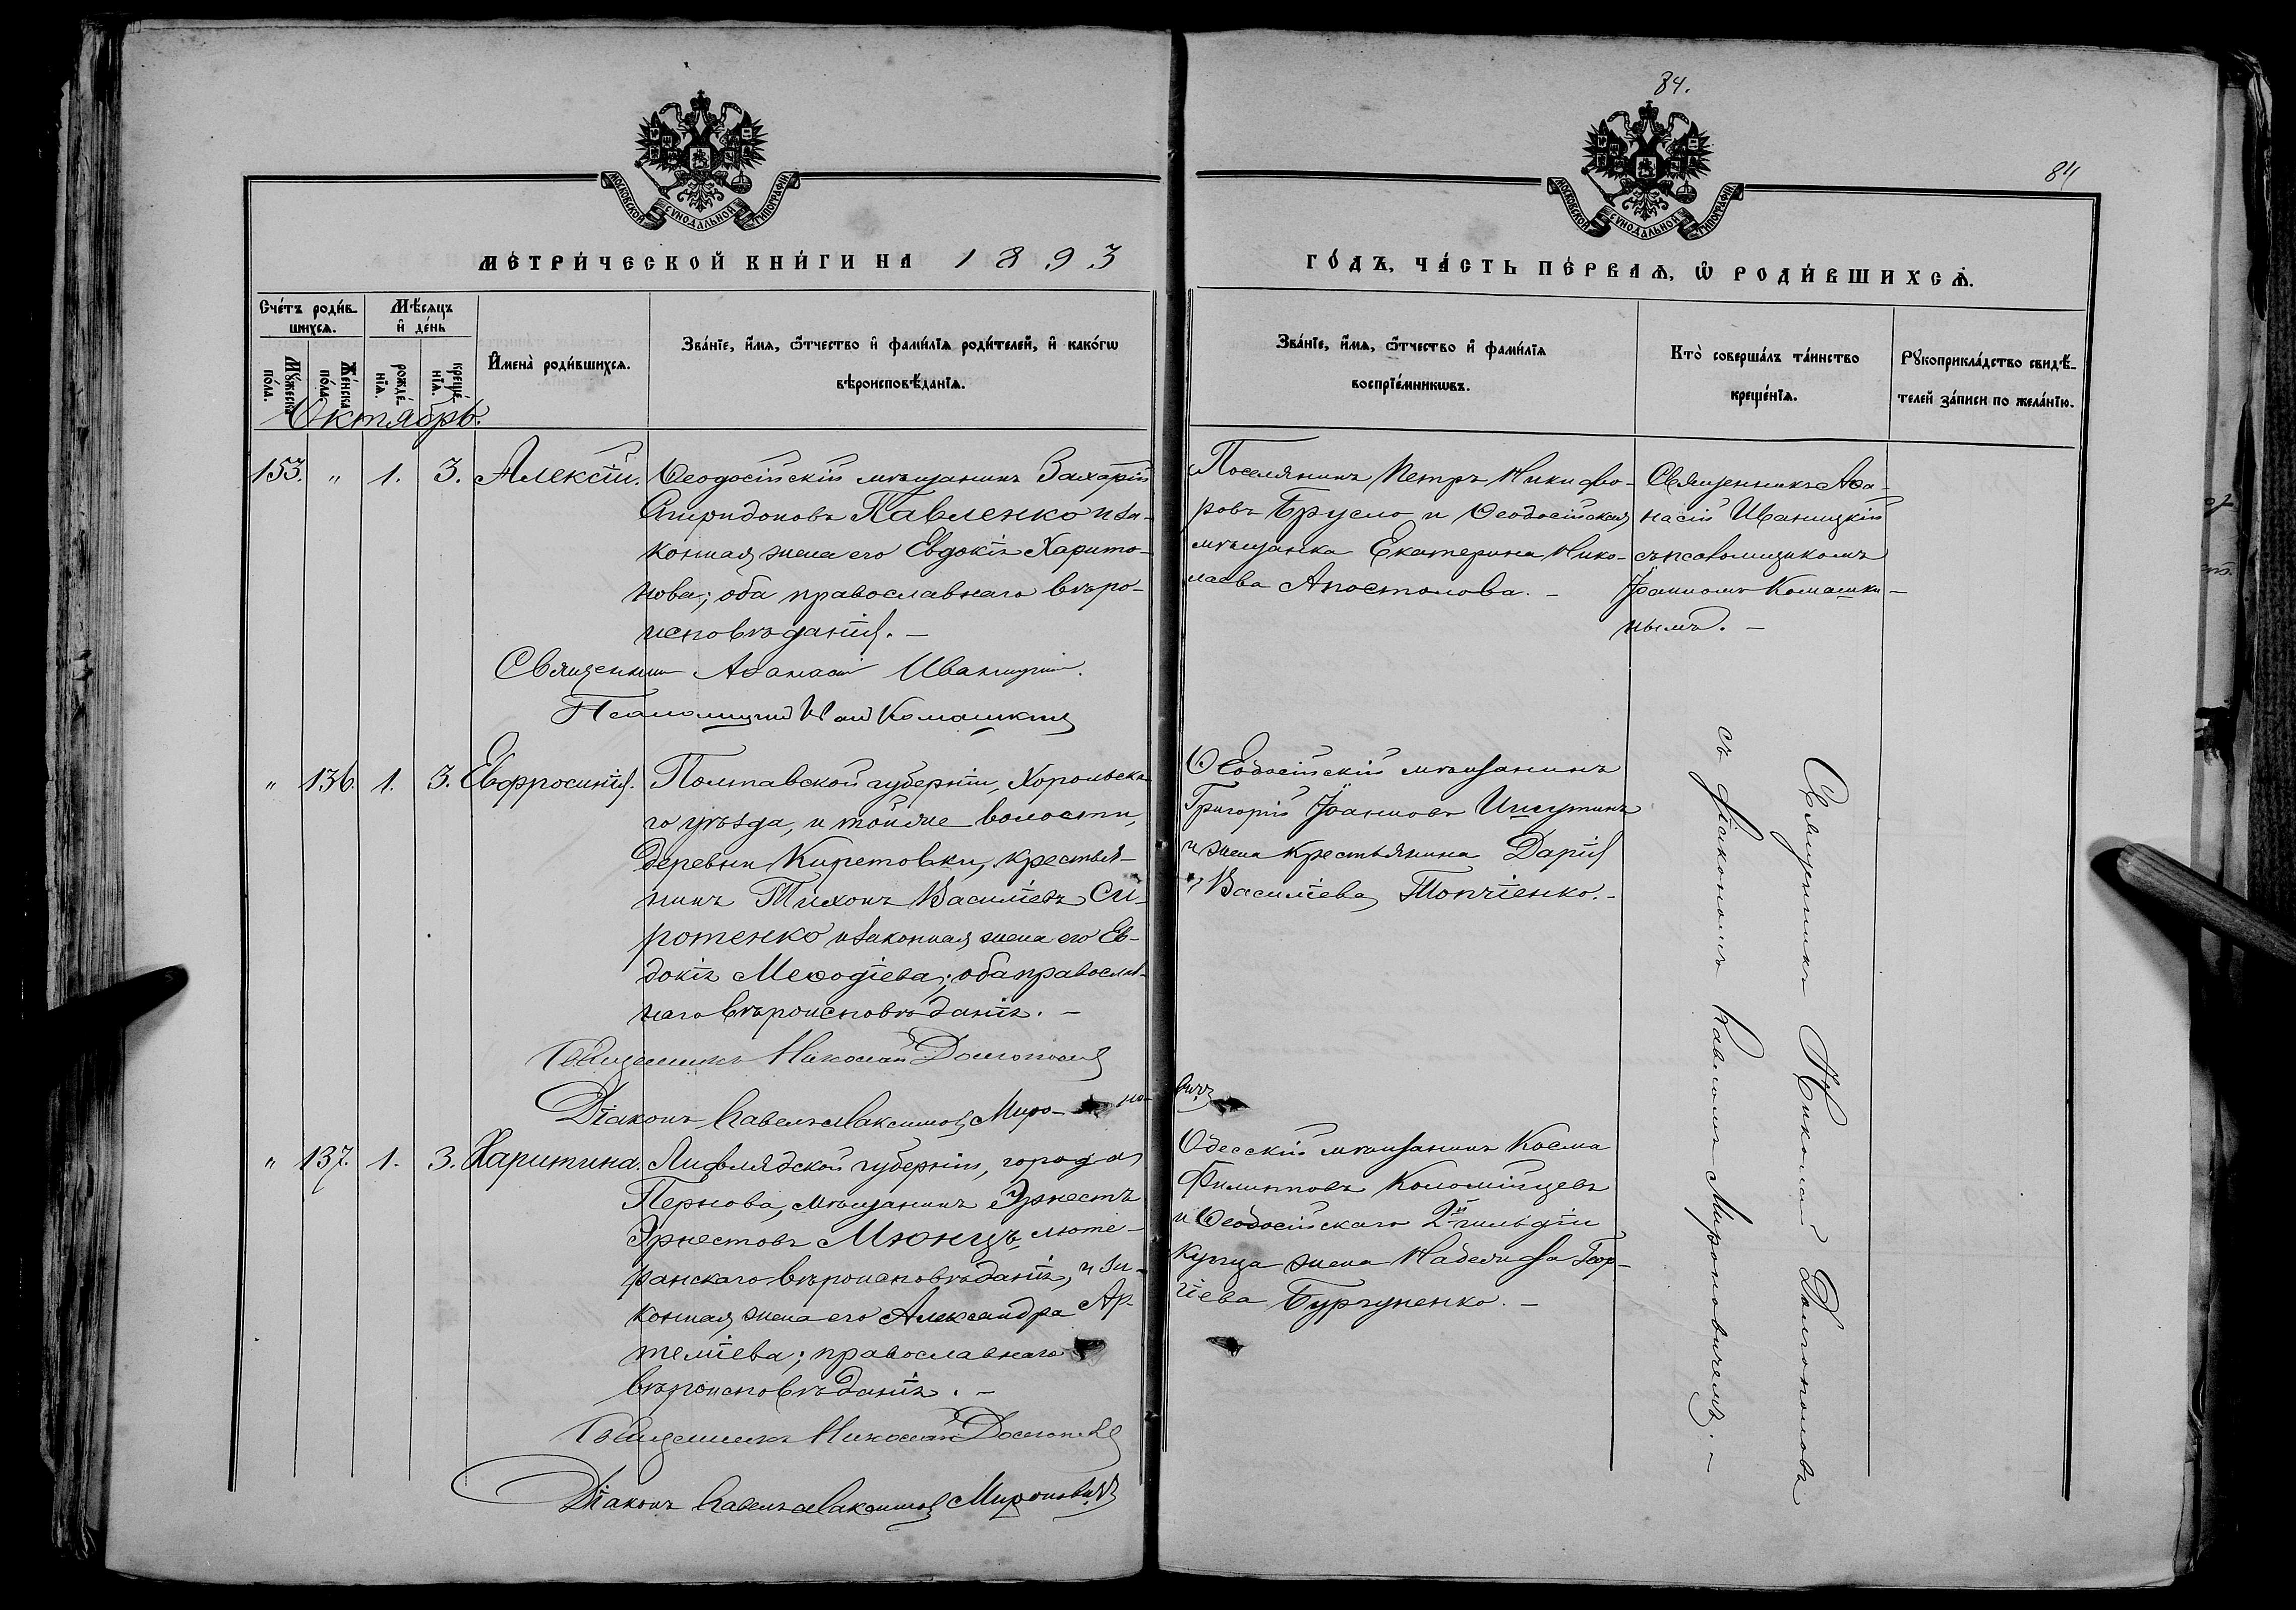 84.
84
МОСКОВСКОЙ СѴНОДАЛЬНОЙ ТИПОГРАФІИ
МОСКОВСКОЙ СѴНОДАЛЬНОЙ ТИПОГРАФІИ
МЕТРИЧЕСКОЙ КНИГИ НА 1893
ГОДЪ, ЧАСТЬ ПЕРВАЯ, Ѡ РОДИВШИХСЯ.
Счетъ родив-
шихся.
Мѣсяцъ
и день
Мужеска
пола.
Женска
пола.
рожде-
нія.
креще-
нія.
Имена родившихся.
Званіе, имя, ѿчество и фамилія родителей, и какогѡ
вѣроисповѣданія.
Званіе, имя, ѿчество и фамилія
воспріемникѡвъ.
Кто совершалъ таинство
крещенія.
Рукоприкладство свидѣ-
телей записи по желанію.
Октябрь.
153. " 1. 3. Алексій. Ѳеодосійскій мѣщанинъ Захарій
Спиридоновъ Павленко и за-
конная жена его Евдокія Харито-
нова; оба православнаго вѣро-
исповѣданія. —
Священникъ Аѳанасій Иваницкій.
Псаломщикъ Комашкинъ
Поселянинъ Петръ Никифо-
ровъ Брусло и Ѳеодосійская
мѣщанка Екатерина Нико-
лаева Апостолова. —
Священникъ Аѳа-
насій Иваницкій
съ псаломщикомъ
Іоанномъ Комашки-
нымъ. —
" 136. 1. 3. Евфросинія. Полтавской губерніи, Хорольска-
го уѣзда, и тойже волости,
деревни Киретовки, крестья-
нинъ Тихонъ Василіевъ Си-
ротенко и законная жена его Ев-
докія Меѳодіева; оба православ-
наго вѣроисповѣданія. —
Священникъ Николай Долгополовъ
Діаконъ Павелъ Максимовъ Миро- но-
вичъ
Ѳеодосійскій мѣщанинъ
Григорій Іоанновъ Ишутинъ
и жена крестьянина Дарія
Василіева Топчіенко. —
Священникъ Николай Долгополовъ
съ діакономъ Павломъ Мироновичемъ. —
" 137. 1. 3. Харитина. Лифлядской губерніи, города
Пернова, мѣщанинъ Эрнестъ
Эрнестовъ Мюнцъ, люте-
ранскаго вѣроисповѣданія, и за-
конная жена его Александра Ар-
теміева; православнаго
вѣроисповѣданія. —
Священникъ Николай Долгополовъ
Діаконъ Павелъ Максимовъ Мироновичъ
Одесскій мѣщанинъ Косма
Филипповъ Коломійцевъ
и Ѳеодосійскаго 2й гильдіи
купца жена Надежда Геор-
гіева Бургуненко. —